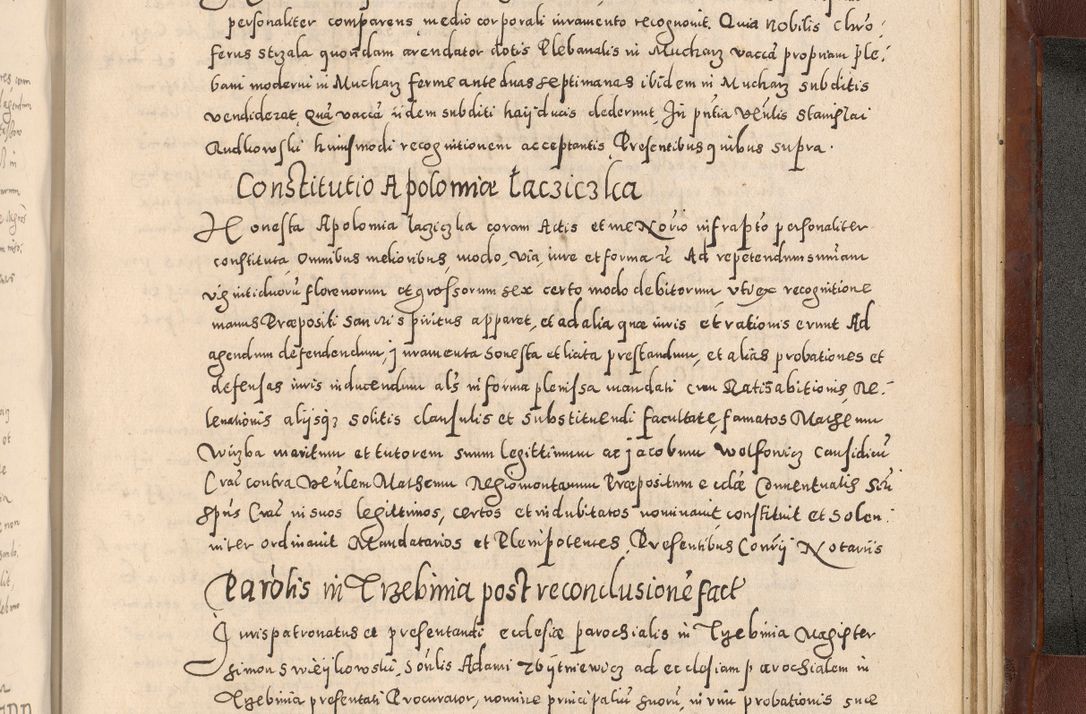 personaliter comparens medio corporali iuramento recognouit. Quia Nobilis Chro-
ferus Strzala quondam arendator dotis Plebanalis in Mucharz vaccã propriam Ple-
bani moderni in Mucharz ferme ante duas septimanas ibidem in Mucharz subditis
vendiderat, Quã vaccã iidem subditi haijducis dederunt, In pñtia Veñlis Stanislai
Rudkowski huiusmodi recognitionem acceptantis Presentibus quibus supra.
Constitutio Apoloniæ Łacziczka
Honesta Apolonia łaziczka coram Actis et me Notrio infrapto personaliter
constituta, Omnibus melioribus, modo, via, iure et forma Ad repetendum sum̃am
viginti duorũ florenorum et grossorum sex certo modo debitorum, vti ex recognitione
manus Præpositi San cti spiritus apparet, et ad alia quæ iuris et rationis erunt Ad
agendum defendendum, iuramenta honesta et licita prestandum, et alias probationes et
defensas iuris inducendum als in forma plenissa mandati cum Ratihabitionis, Re-
leuationis alijsq3 solitis clausulis et substituendi facultate famatos Mathæum
Wuzba maritum et tutorem suum legittimum ac jacobum Wolfowicz causidicũ
Crac̃ contra Veñlem Mathæum Regiomontanum Præpositum ecclæ Conuentualis Sti
Spũs Crac̃ in suos legittimos, certos et indubitatos nominauit constituit et solen-
niter ordinauit Mandatarios et Plenipotentes, Presentibus Consrij Notariis
Parolis in Trzebinia post reconclusionẽ fact
Juris patronatus et presentandi ecclesiæ parochialis in Trzebinia Magister
Simon Swieijkowski, Adami Zbijtniewicz ad ecclesiam parochialem in
Trzebinia presentati Procurator, nomine principaliũ suorũ, in vim probationis suæ